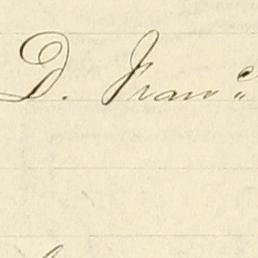 D. Franco